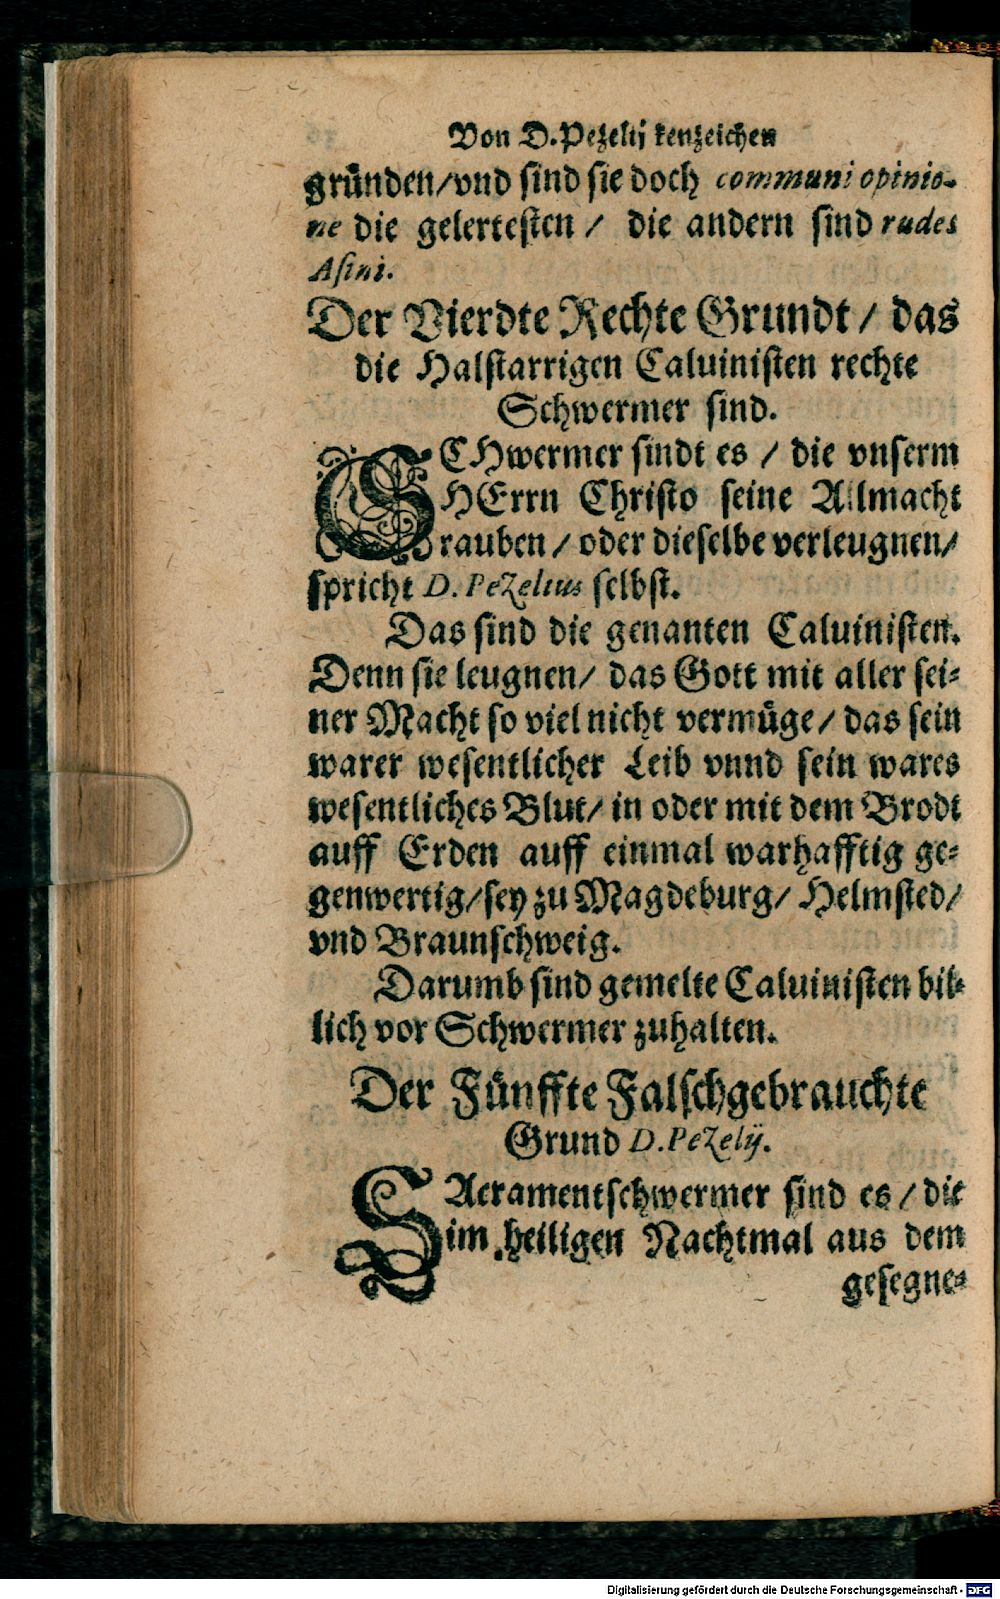 Von D. Pezelij kenzeichen
gründen/vnd sind sie doch communi opinio-
ne die gelertesten / die andern sind rudes
Asini.
Der Vierdte Rechte Grundt / das
die Halstarrigen Caluinisten rechte
Schwermer sind.
SCHwermer sindt es / die vnserm
HErrn Christo seine Allmacht
rauben / oder dieselbe verleugnen/
spricht D. Pezelius selbst.
Das sind die genanten Caluinisten.
Denn sie leugnen/ das Gott mit aller sei-
ner Macht so viel nicht vermüge/ das sein
warer wesentlicher Leib vnnd sein wares
wesentliches Blut/ in oder mit dem Brodt
auff Erden auff einmal warhafftig ge-
genwertig/sey zu Magdeburg/ Helmsted/
vnd Braunschweig.
Darumb sind gemelte Caluinisten bil-
lich vor Schwermer zuhalten.
Der Fünffte Falschgebrauchte
Grund D. Pezelij.
SAcramentschwermer sind es / die
im heiligen Nachtmal aus dem
gesegne-
Digitalisierung gefördert durch die Deutsche Forschungsgemeinschaft - DFG